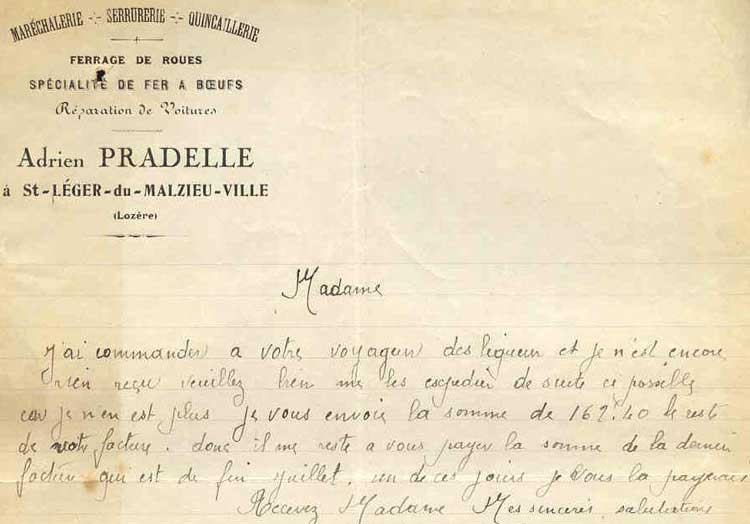 MARÉCHALERIE -:- SERRURERIE -:- QUINCAILLERIE
FERRAGE DE ROUES
SPÉCIALITÉ DE FER A BŒUFS
Réparation de Voitures
Adrien PRADELLE
à St-LÉGER-du-MALZIEU-VILLE
(Lozère)
Madame
J'ai commander a votre voyageur des liqueur et je n'est encore
rien reçu veuillez bien me les de suite ci possible
car je n'en est plus Je vous envoie la somme de 162.40 le reste
de votr facture. donc il me reste a vous payer la somme de la
facture qui est de fin juillet. un de ces jours je vous la payerais
Recevez Madame Mes sincères salutations